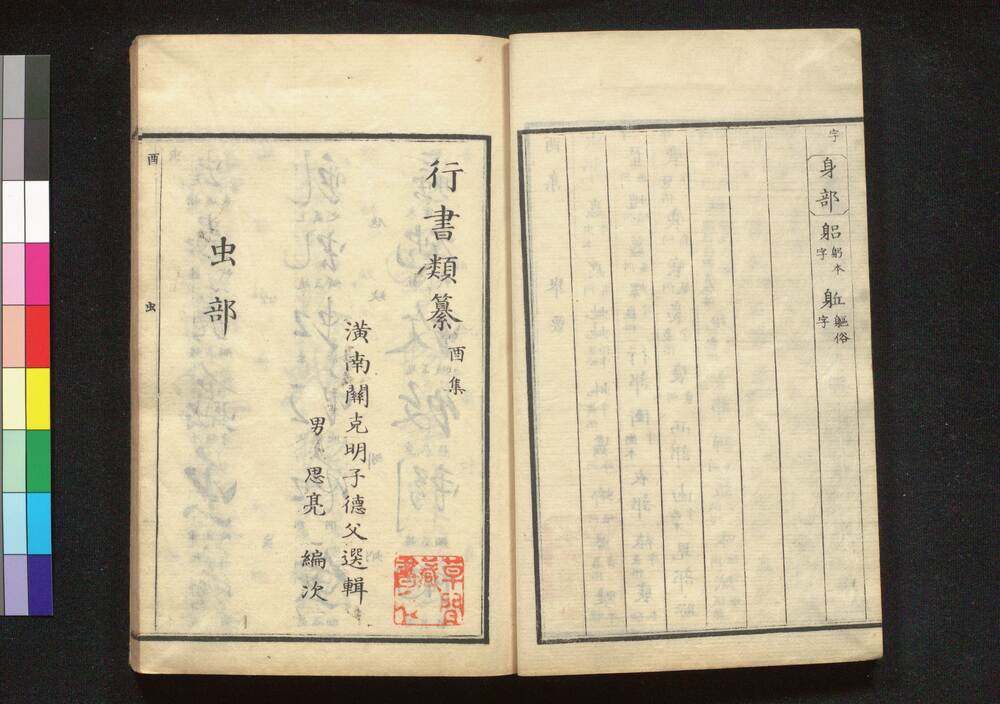 字 身部 躳躬本字 躯軀俗字
行書類纂 酉集
潢南關克明子德父選輯
男 思亮 編次
虫部
酉 虫